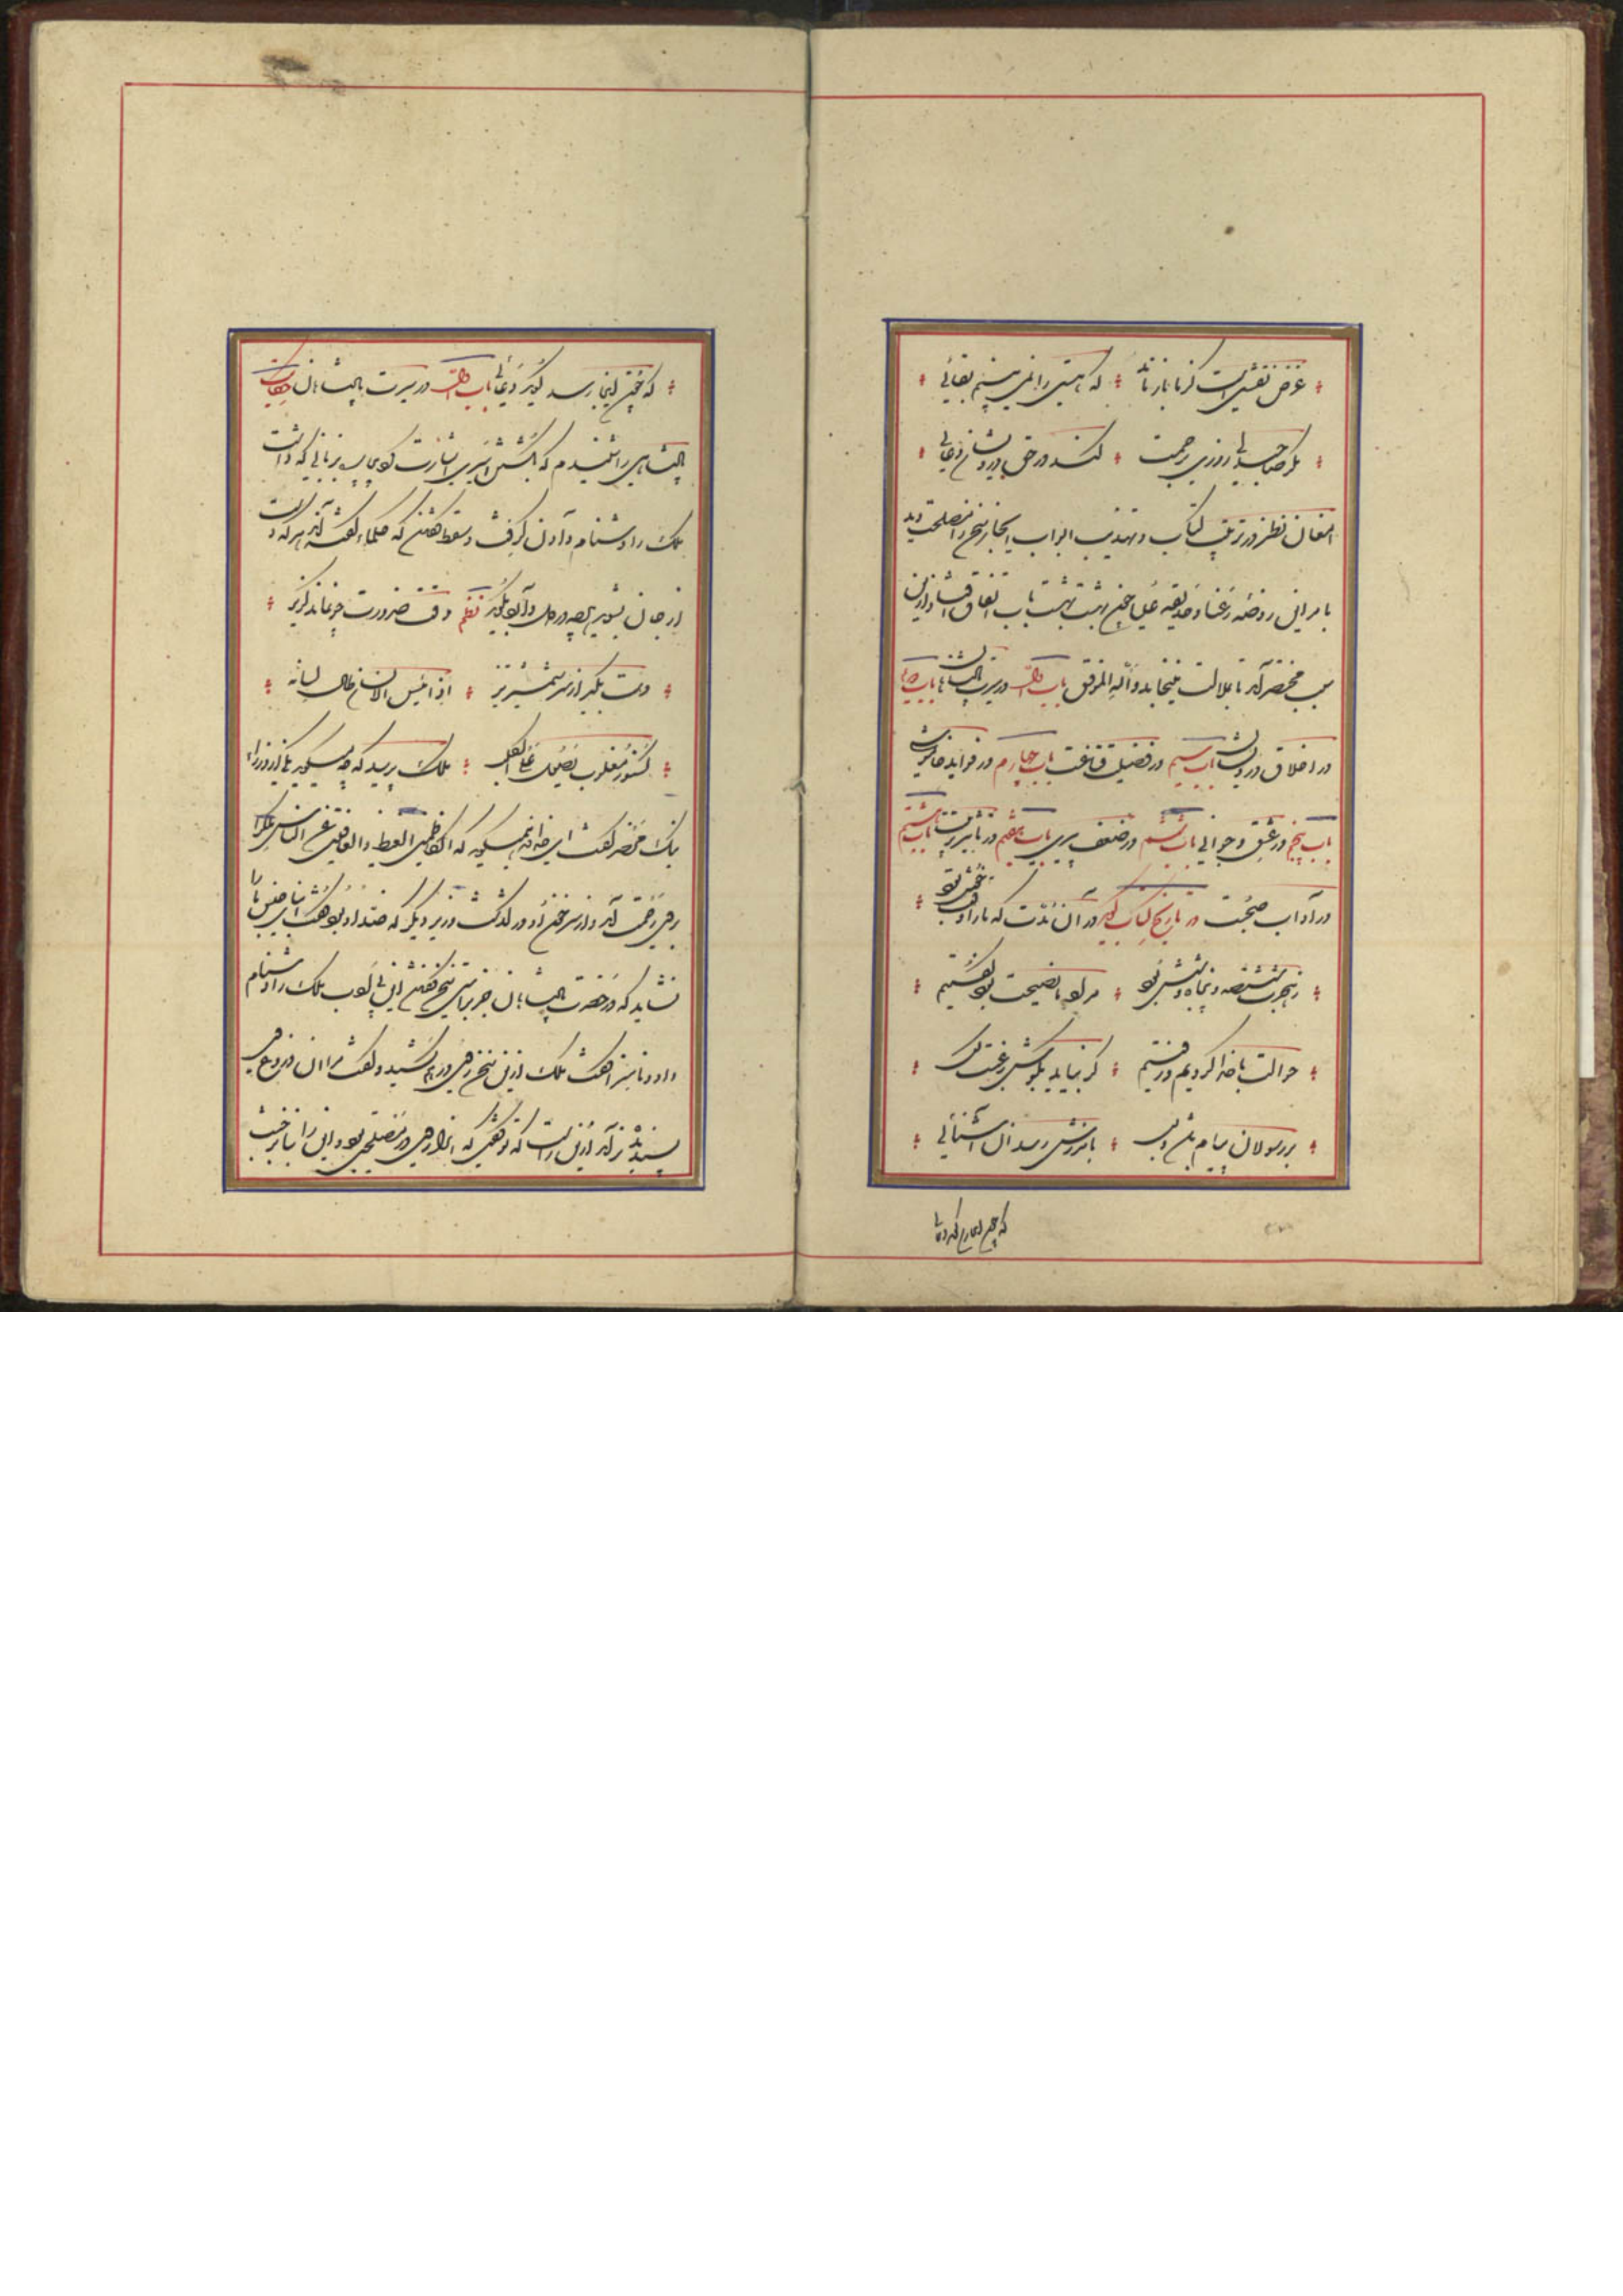 غرض نقشیست کز ما باز ماند که هستی را نمی بینم بقائی
مگر صاحبدلی روزی برحمت کند در حق درویشان دعائی
امعان نظر در ترتیب کتاب و تهذیب ابواب ایجاز سخن را مصلحت دید
تا مر این روضه رعنا و حدیقه علیا چون بهشت بهشت باب اتفاق افتاد ازین
سبب مختصر آمد تا بملالت نینجامد والله الموفق باب اول در سیرت پادشاهان باب دویم
در اخلاق درویشان باب سیم در فضیلت قناعت باب چهارم در فواید خاموشی
باب پنجم در عشق و جوانی باب ششم در ضعف پیری باب هفتم در تاثیر تربیت باب هشتم
در آداب صحبت در تاریخ کتاب گوید در آن مدت که ما را وقت خوش بود
ز هجرت ششصد و پنجاه و شش بود مراد ما نصیحت بود گفتیم
حوالت با خدا کردیم و رفتیم گر نیاید بگوش رغبت کس
بر رسولان پیام باشد و بس بامرزش رسد آن آشنائی
که چون اینجا رسد گوید دعائی
که چون اینجا رسد گوید دعائی باب اول در سیرت پادشاهان حکایت
پادشاهی را شنیدم که بکشتن اسیری اشارت کرد بیچاره بزبانی که داشت
ملک را دشنام دادن گرفت و سقط گفتن که حکما گفته اند هر که دست
از جان بشوید هر چه در دل دارد بگوید نظم وقت ضرورت چو نماند گریز
دست بگیرد سر شمشیر تیز اذا یئس الانسان طال لسانه
کسنور مغلوب یصول علی الکلب ملک پرسید که چه میگوید یکی از وزرای
نیک محضر گفت ای خداوند میگوید که الکاظمین الغیظ والعافین عن الناس ملک را
بر وی رحمت آمد و از سر خون او درگذشت وزیر دیگر که ضد او بود گفت ابنای جنس ما را
نشاید که در حضرت پادشاهان جز براستی سخن گفتن این بی ادب ملک را دشنام
داد و ناسزا گفت ملک ازین سخن روی در هم کشید و گفت مرا آن دروغ وی
پسندیده تر آمد ازین راست که تو گفتی که آنرا روی در مصلحتی بود و این را بنا بر خبث